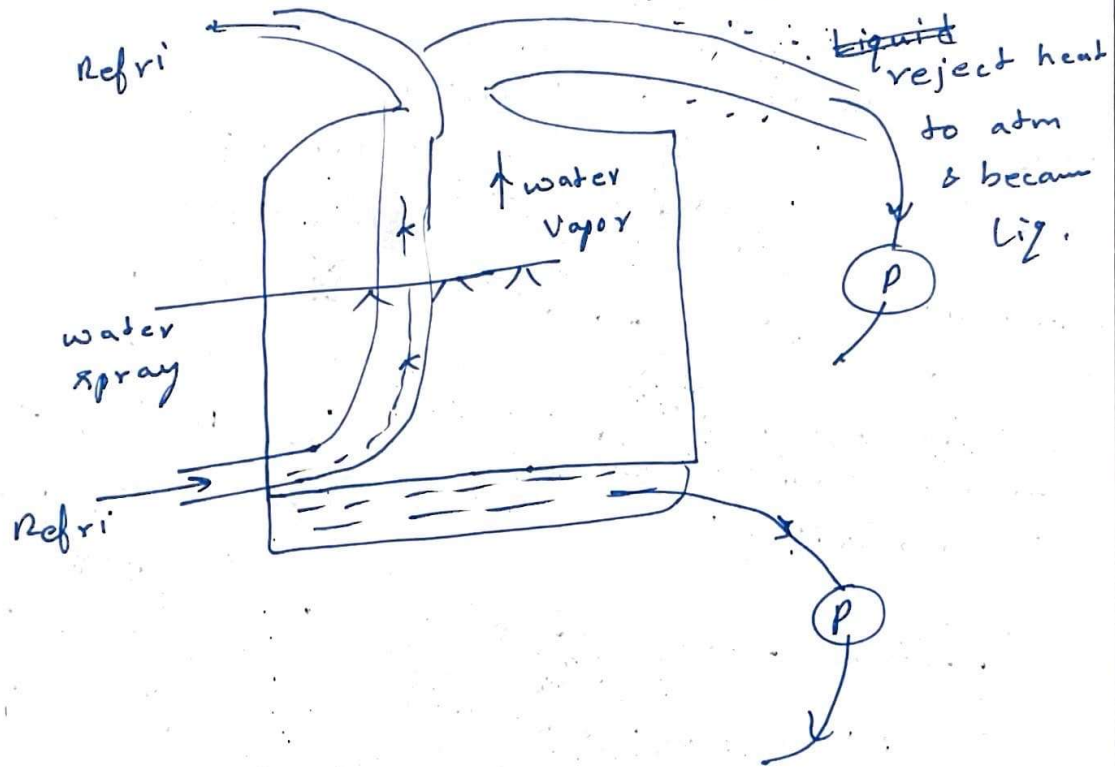 Refri
Liquid
reject heat
to atm
& becam
Liq.
water
vapor
P
water
spray
Refri
P